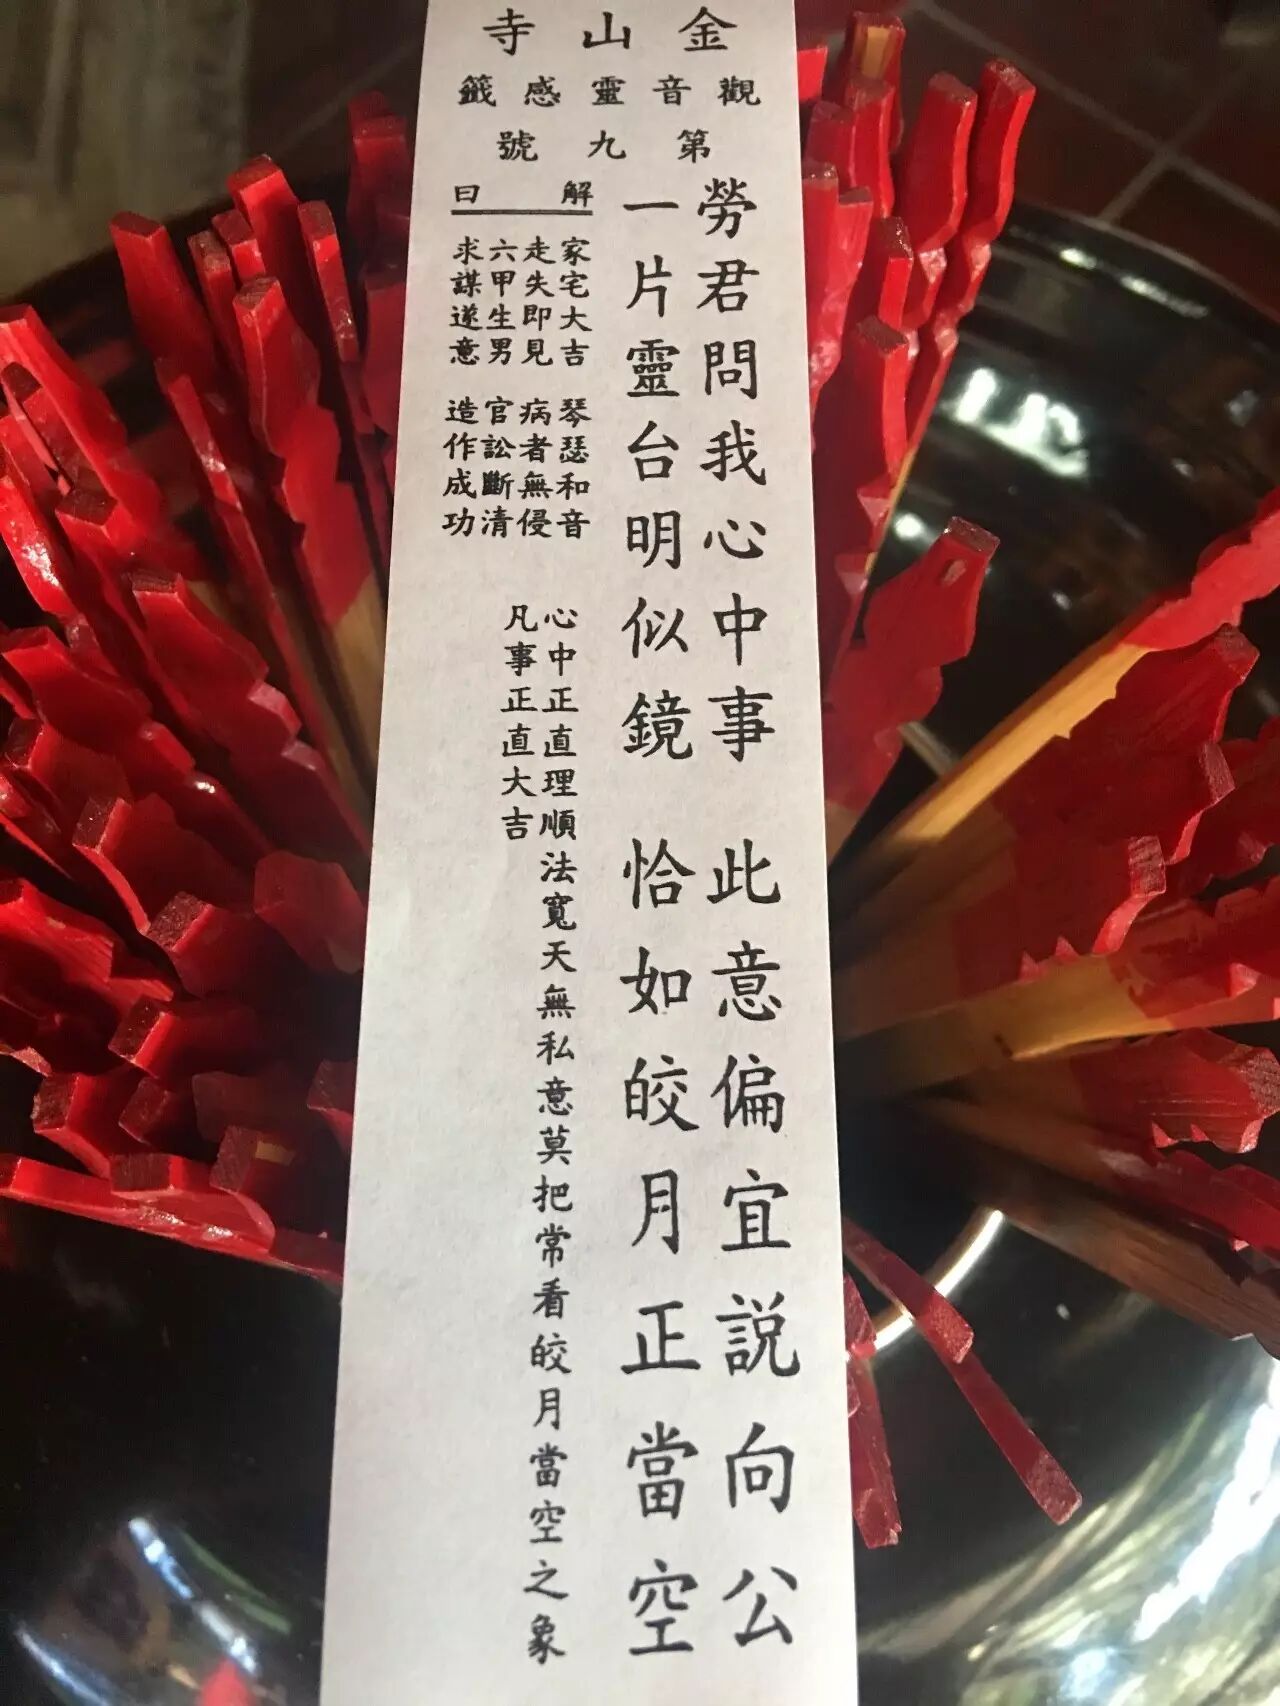 金山寺
觀音靈感籤
第九號
勞君問我心中事 此意偏宜説向公
一片靈台明似鏡 恰如皎月正當空
解曰
家宅大吉 琴瑟和音
走失即見 病者無侵
六甲生男 官訟斷清
求謀遂意 造作成功
心中正直理順法寬天無私意莫把常看皎月當空之象
凡事正直大吉